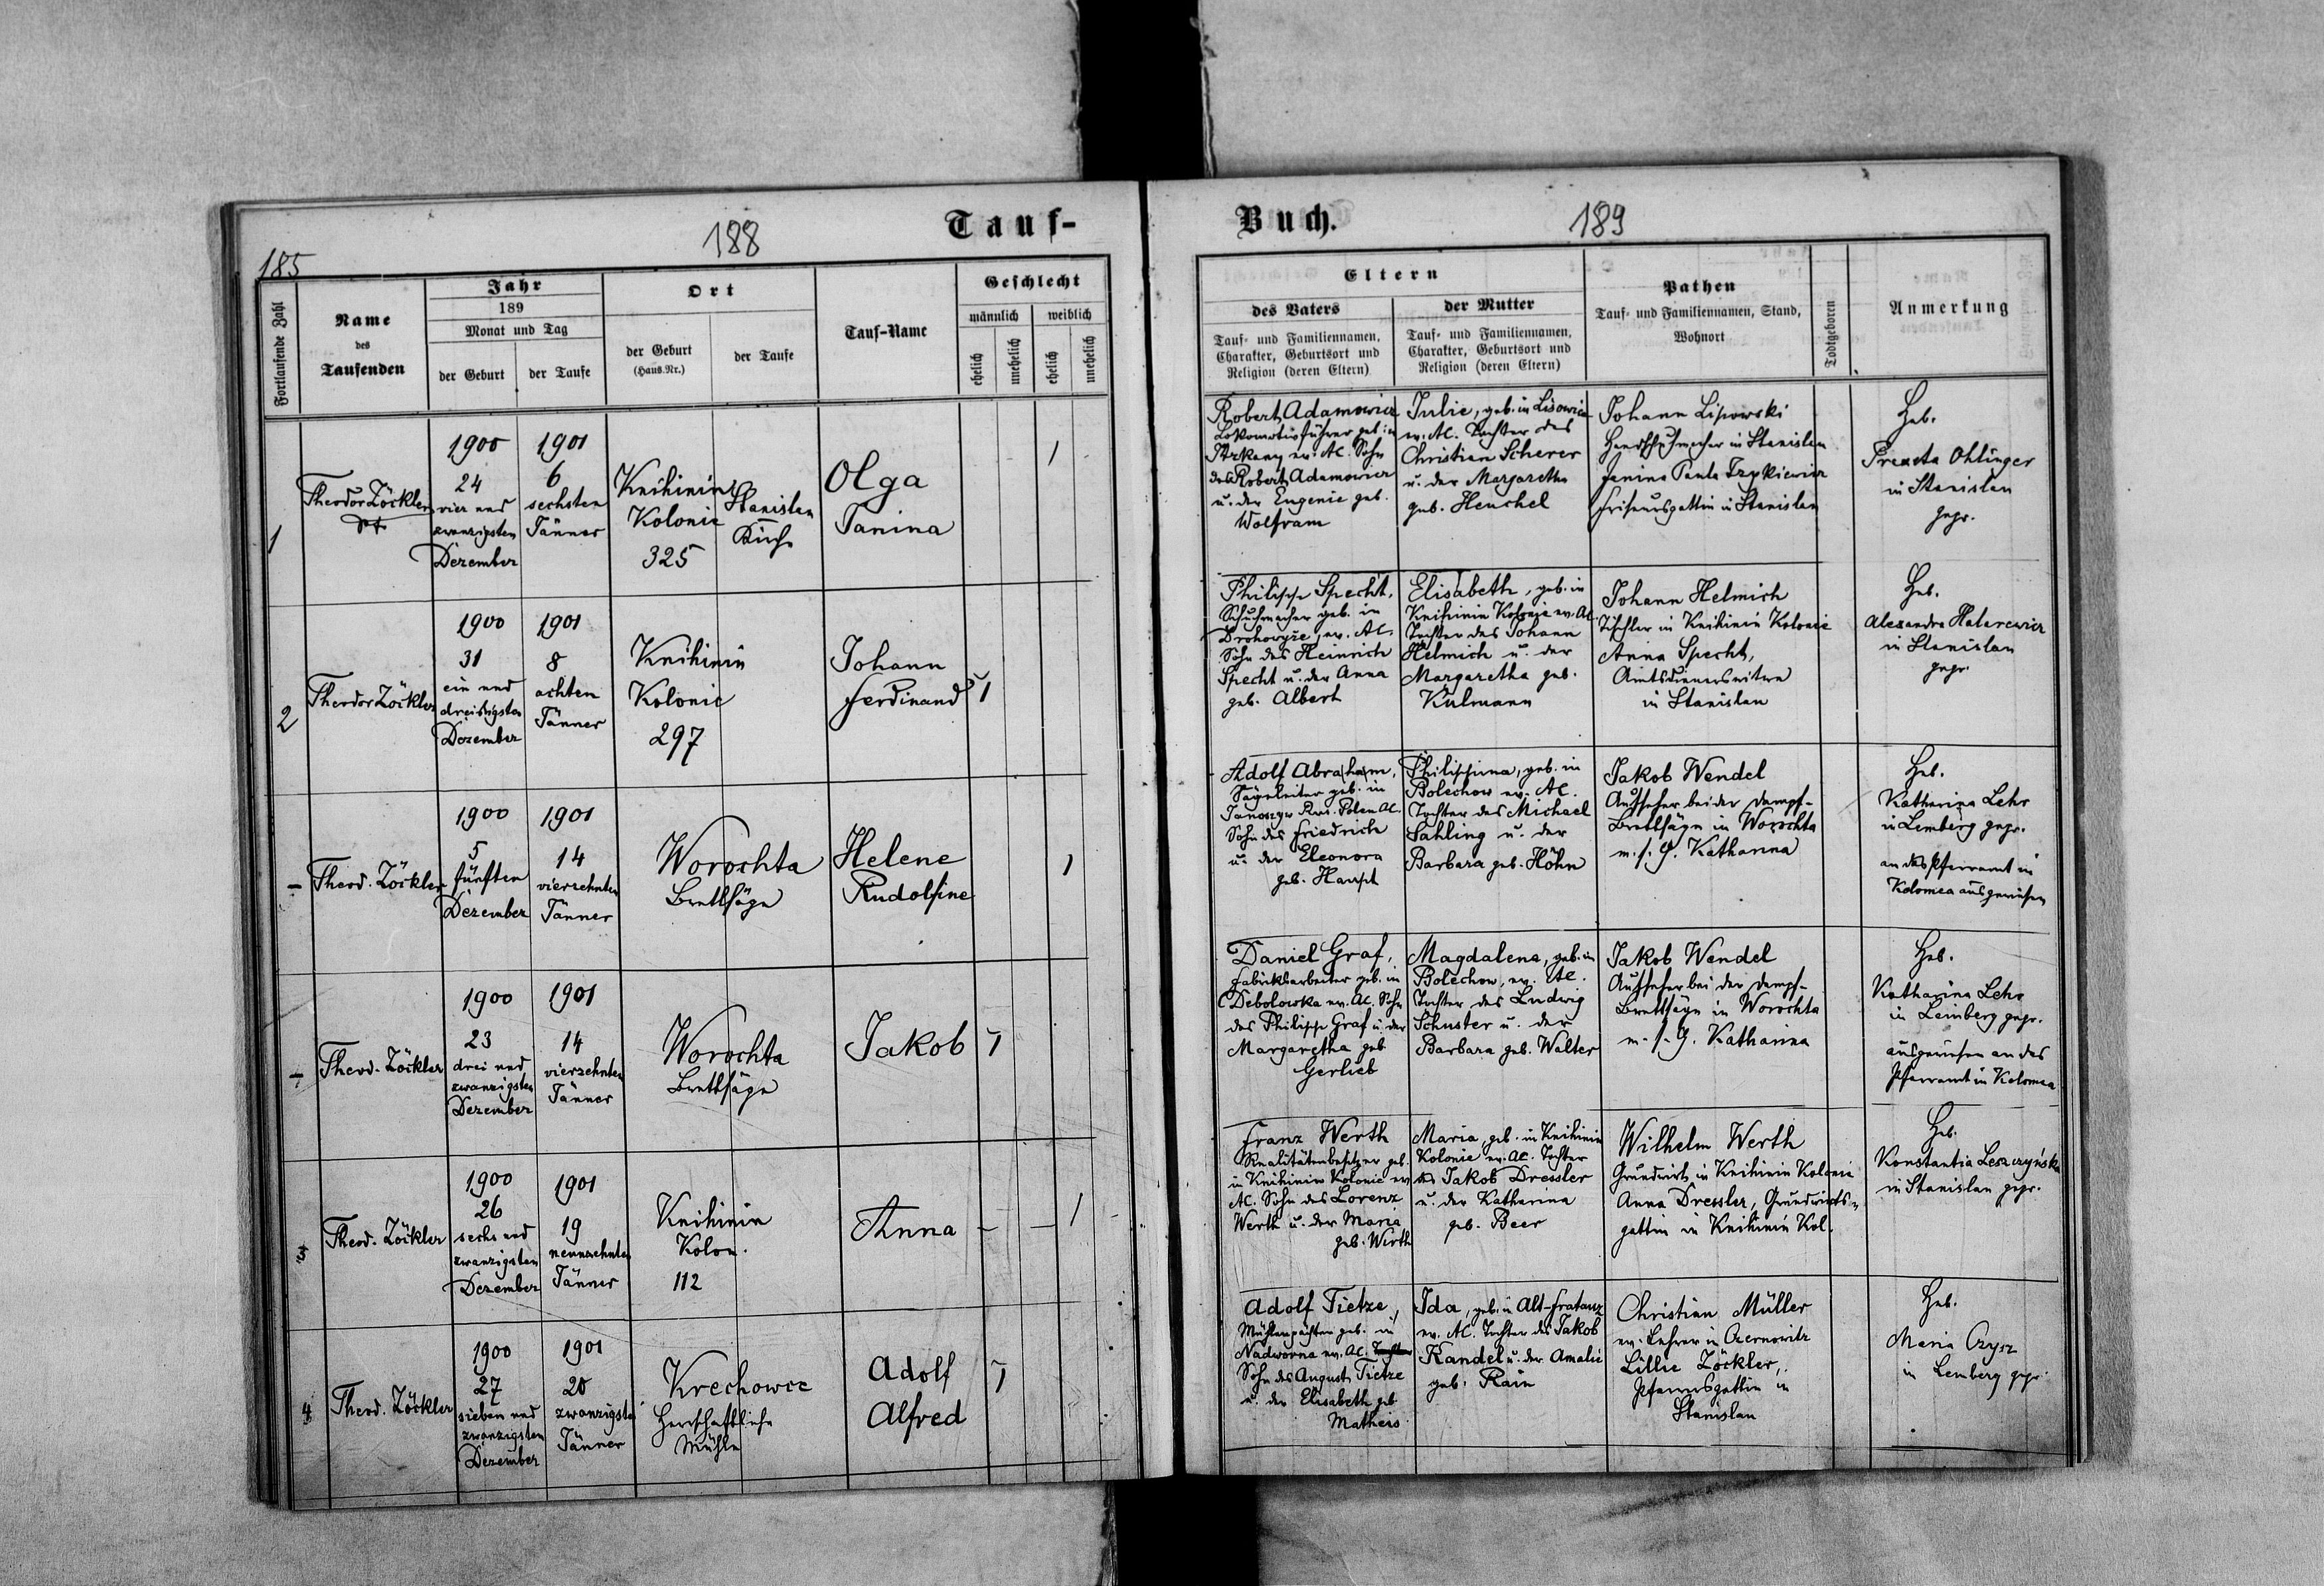 185
188
Tauf-
Buch.
189
Fortlaufende Zahl
Name
des
Taufenden
Jahr
189
Monat und Tag
der Geburt
der Taufe
Ort
der Geburt
(Haus-Nr.)
der Taufe
Tauf-Name
Geschlecht
männlich
weiblich
ehelich
unehelich
ehelich
unehelich
Eltern
des Vaters
Tauf- und Familiennamen,
Charakter, Geburtsort und
Religion (deren Eltern)
der Mutter
Tauf- und Familiennamen,
Charakter, Geburtsort und
Religion (deren Eltern)
Pathen
Tauf- und Familiennamen, Stand,
Wohnort
Todtgeboren
Anmerkung
1
Theodor Zöckler
1900
24
vier und
zwanzigsten
Dezember
1901
6
sechsten
Jänner
Knihinin
Kolonie
325
Stanislau
Kirche
Olga
Janina
1
Robert Adamowicz
Lokomotivführer geb. in
ev. AC. Sohn
des Robert Adamowicz
u. der Eugenie geb.
Wolfram
Julie, geb. in Lisowice
ev. AC. Tochter des
Christian Scherer
u. der Margaretha
geb. Henchel
Johann Lipowski
Handschuhmacher in Stanislau
Janina Paula
Friseursgattin in Stanislau
Heb.
Ohlinger
in Stanislau
gepr.
2
Theodor Zöckler
1900
31
ein und
dreißigsten
Dezember
1901
8
achten
Jänner
Knihinin
Kolonie
297
Johann
Ferdinand
1
Philipp Specht,
Schuhmacher geb. in
Drohowyże, ev. AC.
Sohn des Heinrich
Specht u. der Anna
geb. Albert
Elisabeth, geb. in
Knihinin Kolonie ev. AC.
Tochter des Johann
Helmich u. der
Margaretha geb.
Kulmann
Johann Helmich
Tischler in Knihinin Kolonie
Anna Specht,
Amtsdienerswitwe
in Stanislau
Heb.
Alexandra
in Stanislau
gepr.
Theod. Zöckler
1900
5
fünften
Dezember
1901
14
vierzehnten
Jänner
Worochta
Brettsäge
Helene
Rudolfine
1
Adolf Abraham,
Sägeleiter geb. in
Russ. Polen AC.
Sohn des Friedrich
u. der Eleonora
geb. Haupt
Philippina, geb. in
Bolechow ev. AC.
Tochter des Michael
Sahling u. der
Barbara geb. Höhn
Jakob Wendel
Aufseher bei der Dampf-
Brettsäge in Worochta
m. s. G. Katharina
Heb.
Katharina Lehr
in Lemberg gepr.
an das Pfarramt in
Kolomea ausgewiesen
Theod. Zöckler
1900
23
drei und
zwanzigsten
Dezember
1901
14
vierzehnten
Jänner
Worochta
Brettsäge
Jakob
1
Daniel Graf,
Fabriksarbeiter geb. in
Debolowka ev. AC. Sohn
des Philipp Graf u. der
Margaretha geb.
Gerlieb
Magdalena, geb. in
Bolechow, ev. AC.
Tochter des Ludwig
Schuster u. der
Barbara geb. Walter
Jakob Wendel
Aufseher bei der Dampf-
Brettsäge in Worochta
m. s. G. Katharina
Heb.
Katharina Lehr
in Lemberg gepr.
ausgewiesen an das
Pfarramt in Kolomea
3
Theod. Zöckler
1900
26
sechs und
zwanzigsten
Dezember
1901
19
neunzehnten
Jänner
Knihinin
Kolon.
112
Anna
1
Franz Werth
Realitätenbesitzer geb.
in Knihinin Kolonie ev.
AC. Sohn des Lorenz
Werth u. der Maria
geb. Wirth
Maria, geb. in Knihinin
Kolonie ev. AC. Tochter
des Jakob Dressler
u. der Katharina
geb. Beer
Wilhelm Werth
Grundwirt in Knihinin Kolonie
Anna Dressler, Grundwirts-
gattin in Knihinin Kol.
Heb.
Konstantia Leszczyńska
in Stanislau gepr.
4
Theod. Zöckler
1900
27
sieben und
zwanzigsten
Dezember
1901
20
zwanzigsten
Jänner
Krechowce
Herrschaftliche
Mühle
Adolf
Alfred
1
Adolf Tietze,
Mühlenpächter geb. in
Nadworna ev. AC.
Sohn des August Tietze
u. der Elisabeth geb.
Matheis
Ida, geb. in Alt-Fratautz
ev. AC. Tochter des Jakob
Kandel u. der Amalie
geb. Rain
Christian Müller
ev. Lehrer in Czernowitz
Lillie Zöckler,
Pfarrersgattin in
Stanislau
Heb.
Maria Czysz
in Lemberg gepr.